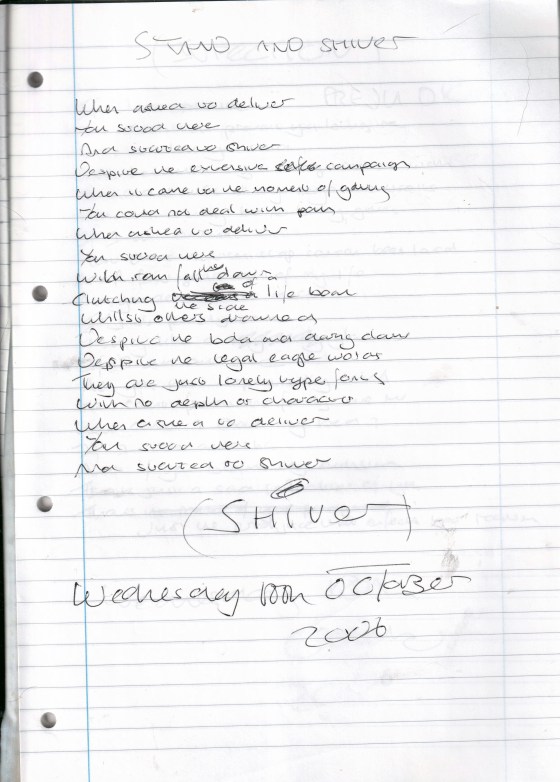 STAND AND SHIVER
When asked to deliver
You stood there
And started to shiver
Despite the expensive campaign
When it came to the moment of giving
You could not deal with pain
When asked to deliver
You stood there
With rain falling down
Clutching the side of life boat
Whilst others drowned
Despite the bold and daring
Despite the legal eagle words
They are just lonely hyper
With no depth or character
When asked to deliver
You stood there
And started to shiver
(SHIVER)
Wednesday October
2006